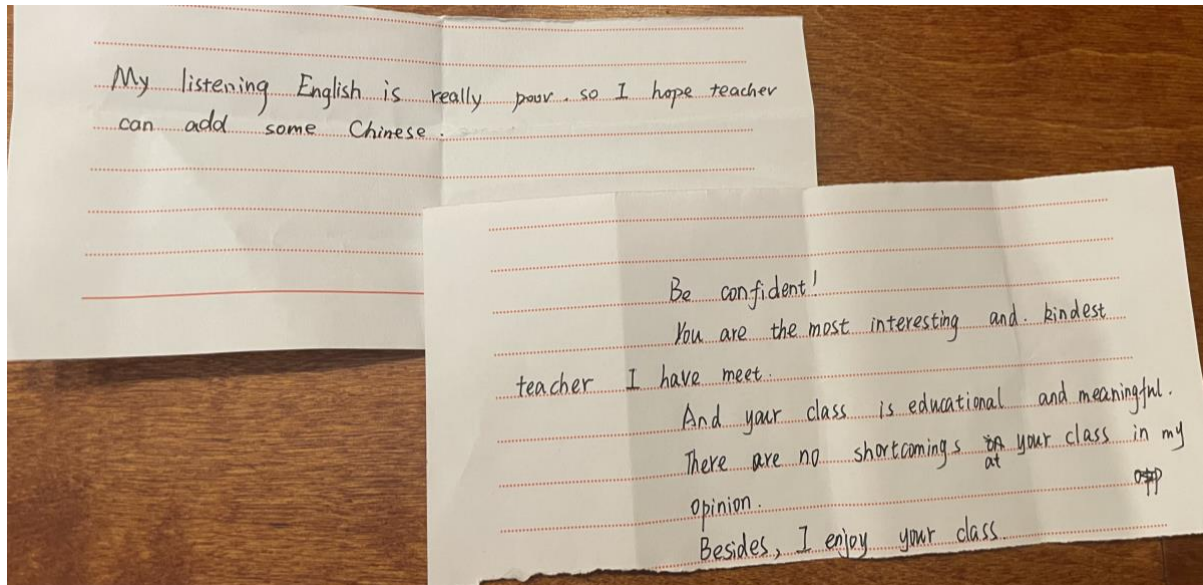 My listening English is really pour. so I hope teacher
can add some Chinese.
Be confident!
You are the most interesting and. kindest
teacher I have meet.
And your class is educational and meaningful.
There are no shortcomings at your class in my
opinion.
Besides, I enjoy your class.